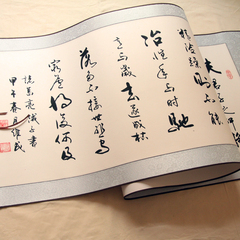 夫君子
则不能
冶性年与时驰
意与岁去遂成枯
落多不接世悲守
穷庐将复何及
诸葛亮诫子书
甲午春月